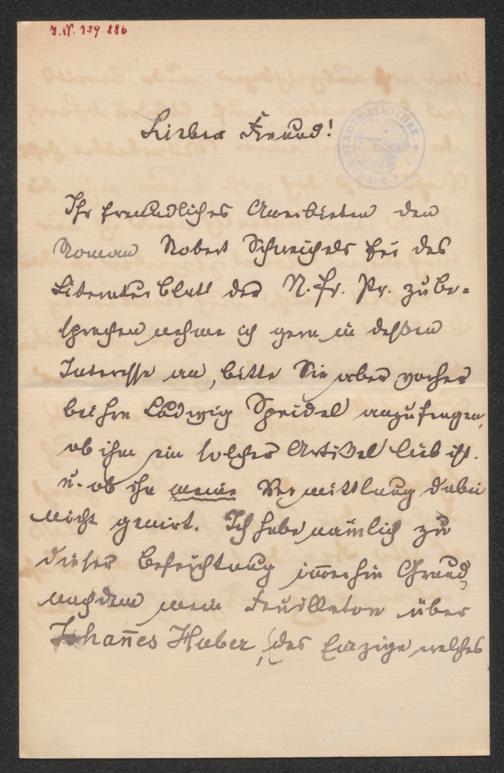 J. N. 139 886
Lieber Freund!
Ihr freundliches Anerbieten den
Roman Robert Schweichels für das
Literaturblatt der N. fr. Pr. zu be-
sprechen nehme ich gern in dessen
Interesse an, bitte Sie aber vorher
bei Hrn Ludwig Speidel anzufragen,
ob ihm ein solcher Artikel lieb ist.
u. ob ihn meine Vermittlung dabei
nicht genirt. Ich habe nämlich zu
dieser Befürchtung im̅erhin Grund,
nachdem mein Feuilleton über
Johan̅es Huber, das Einzige welches